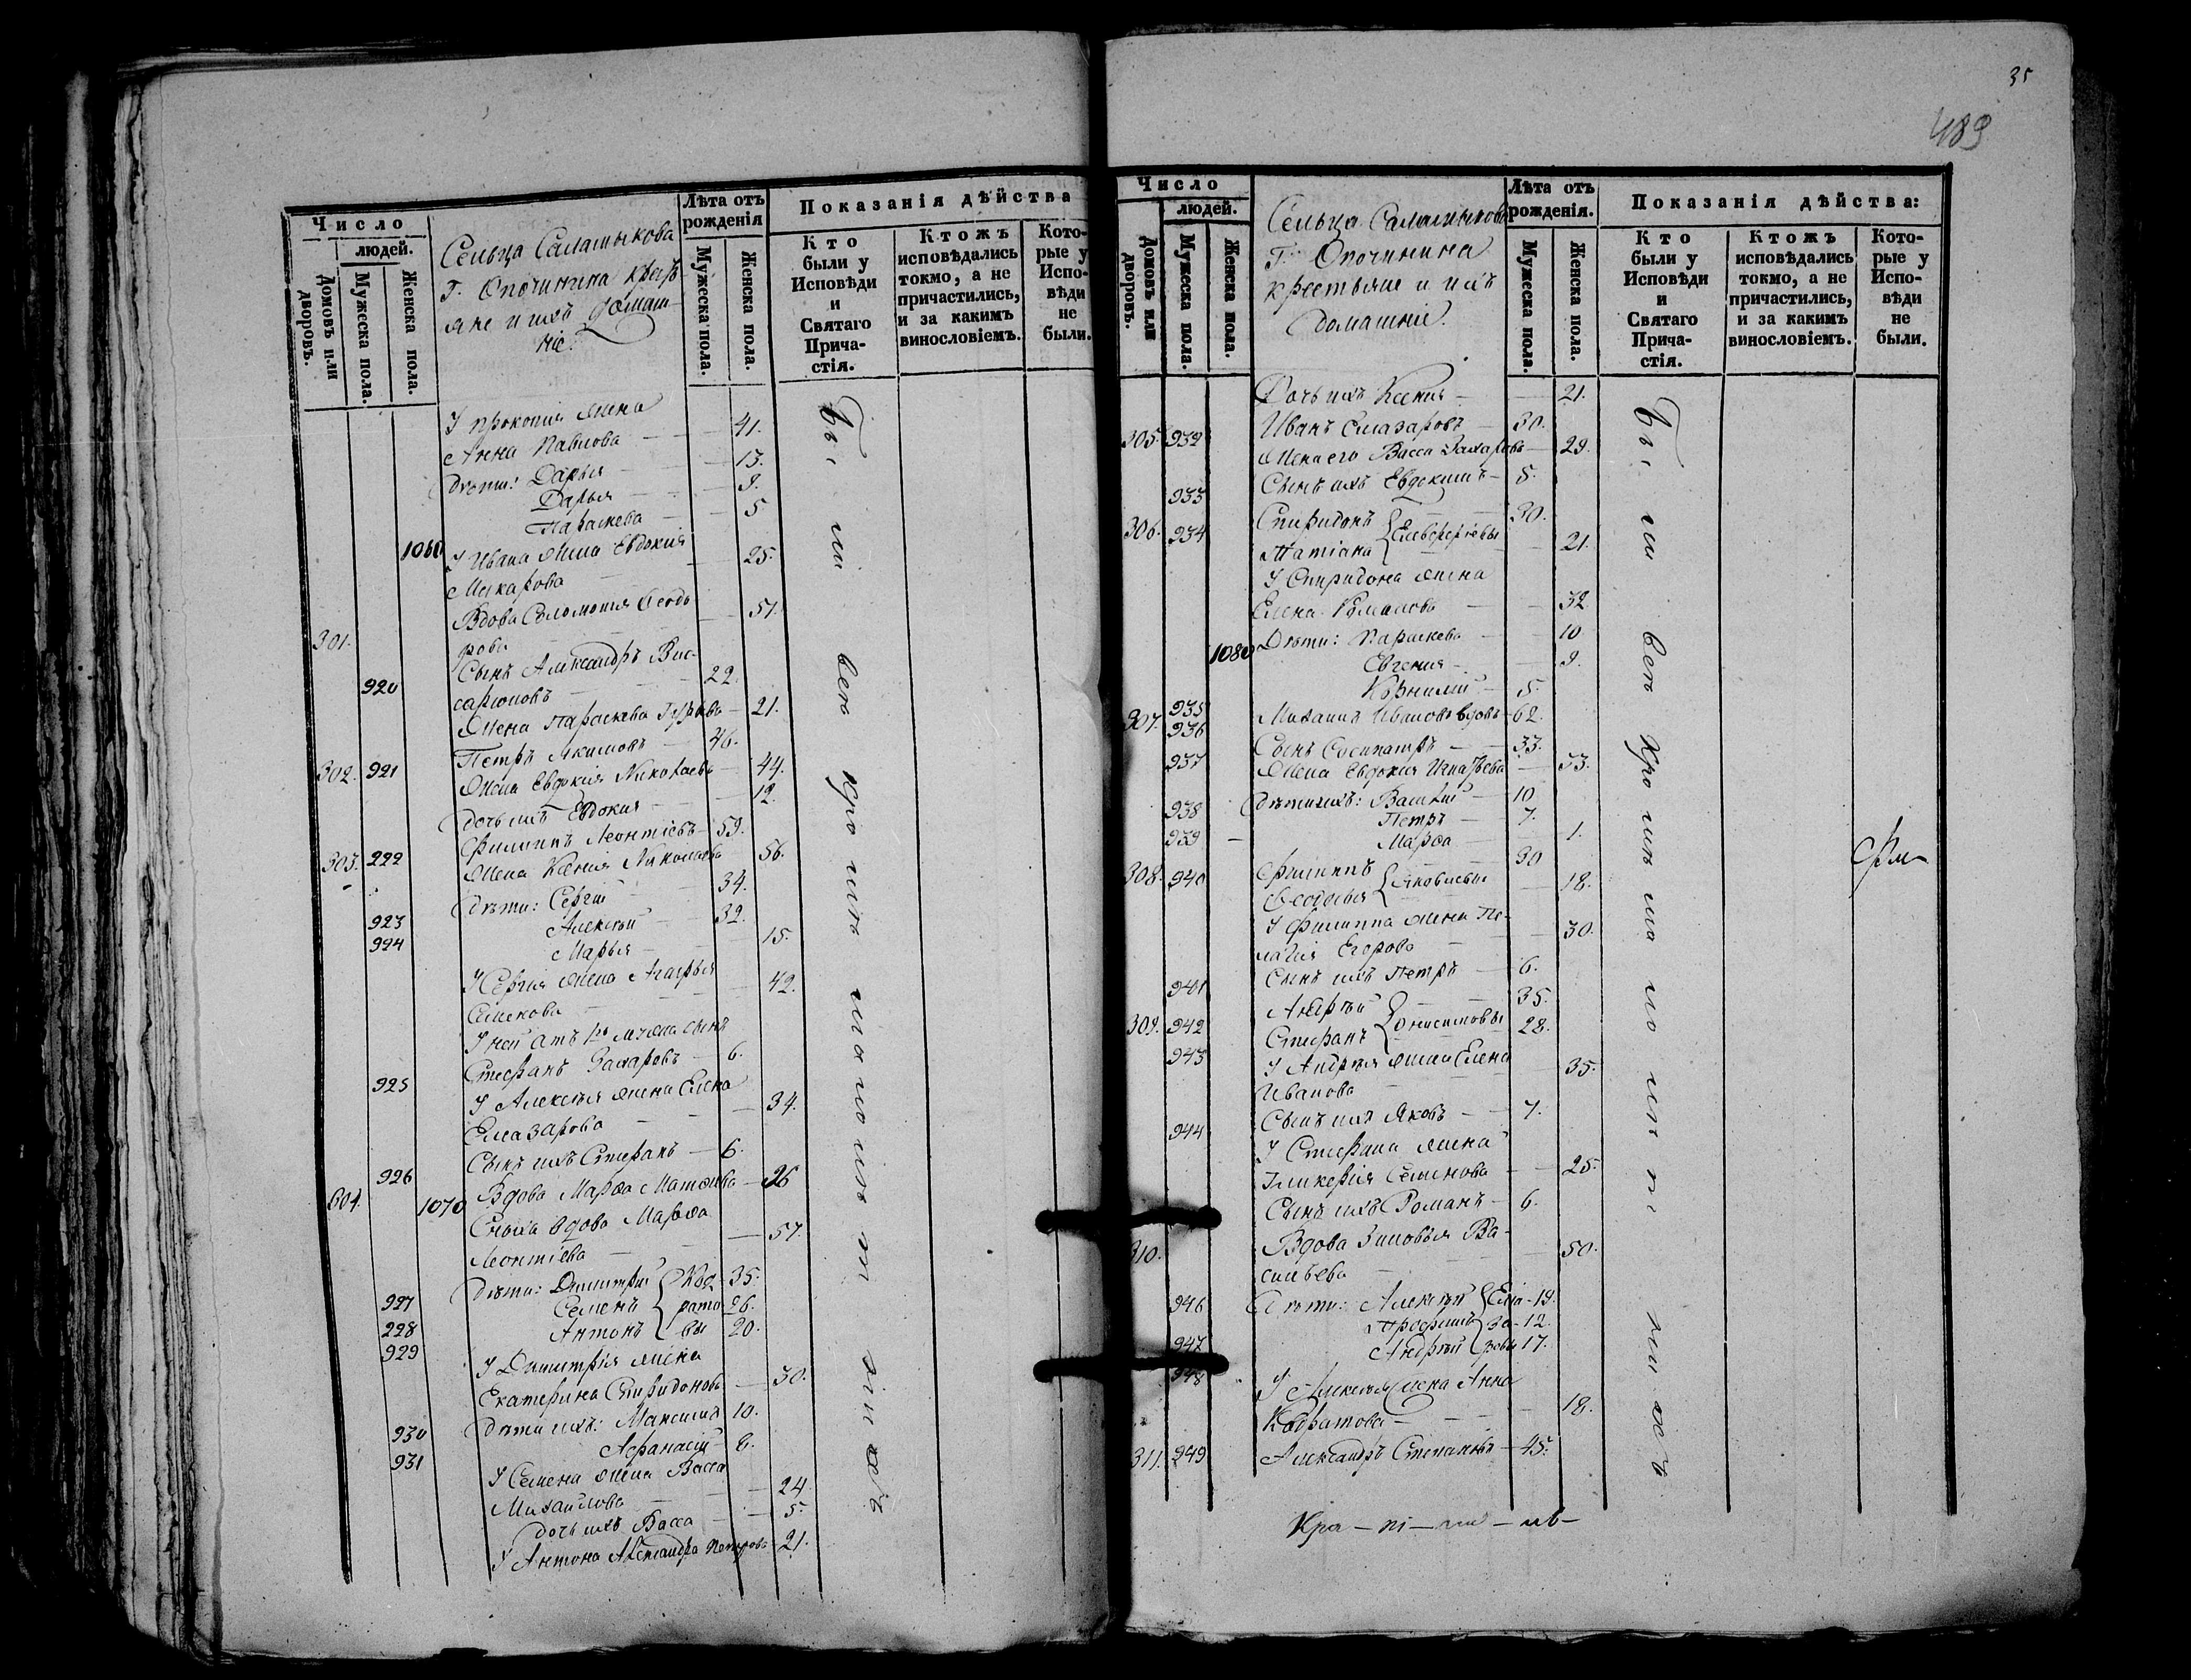 Число
людей.
Домовъ или дворовъ.
Мужеска пола.
Женска пола.
Сельца Салатыкова
Г. Опочинина крестъ
яне и ихъ домаш-
ніе:
Лѣта отъ рожденія
Мужеска пола.
Женска пола.
Показанія дѣйства
Кто были у Исповѣди и Святаго Причастія.
Ктожъ исповѣдались токмо, а не причастились, и за какимъ винословіемъ.
Которые у Исповѣди не были.
У Прокопія жена
Анна Павлова — 41.
Дѣти: Дарья — 13.
Дарья — 9.
Параскева — 5
1060 У Ивана жена Евдокія
Макарова 25.
301. Вдова Соломонія Ѳеодо
рова 51.
920 Сынъ Александръ Вис-
саріоновъ 22.
Жена Параскева — 21.
302. 921 Петръ Якимовъ — 46.
Жена Евдокія Николаева — 44.
Дочь ихъ Евдокія 12.
303. 922 Филиппъ Леонтіевъ — 59.
Жена Ксенія Николаева 56.
Дѣти: Сергій 34.
923 Алексѣй 32.
924 Марья 15.
У Сергія жена Агафья
Семенова 42.
У ней отъ 1го мужа сынъ
Стефанъ Захаровъ — 6.
925 У Алексѣя жена Елена
Елазарова 34.
Сынъ ихъ Стефанъ — 6.
926
604. 1070 Вдова Марѳа Матвѣева — 26
Сноха вдова Марѳа
Леонтіева 57.
Дѣти: Димитрій Код- 35.
927 Семенъ рато 26.
928 Антонъ вы 20.
929 У Димитрія жена
Екатерина Спиридонова — 30.
Дѣти ихъ: Максимъ 10.
930 Афанасій 6.
931 У Семена жена Васса
Михайлова 24.
Дочь ихъ Васса 5.
У Антона Александра Петрова 21.
35
489
Число
людей.
Домовъ или дворовъ.
Мужеска пола.
Женска пола.
Сельца Салатыкова
Г. Опочинина
крестьяне и ихъ
домашніе.
Лѣта отъ рожденія.
Мужеска пола.
Женска пола.
Показанія дѣйства:
Кто были у Исповѣди и Святаго Причастія.
Ктожъ исповѣдались токмо, а не причастились, и за какимъ винословіемъ.
Которые у Исповѣди не были.
Дочь ихъ Ксенія — 21.
305. 932 Иванъ Елазаровъ — 30.
Жена его Васса Захарова — 29.
933 Сынъ ихъ Евдокимъ — 5.
306. 934 Спиридонъ 30.
Татіана Елеверіевы 21.
У Спиридона жена
Елена Романова — 32.
Дѣти: Параскева 10.
1080 Евгенія — 9.
Корнилій — 5.
935
307. 936 Михаилъ Ивановъ вдовъ — 62.
937 Сынъ Сосипатръ — 33.
Жена Евдокія Игнатьева — 33.
938 Дѣти ихъ: Василій — 10
939 Петръ 7.
Марѳа 1.
308. 940 Филиппъ 30
Ѳеодосья Яковлевы 18.
У Филиппа жена Пе-
лагія Егорова 30.
941 Сынъ ихъ Петръ — 6.
309. 942 Андрѣй 35.
Стефанъ Онисимовы 28.
943 У Андрѣя жена Елена
Иванова 35.
944 Сынъ ихъ Яковъ — 7.
У Стефана жена
Гликерія Семенова — 25.
Сынъ ихъ Романъ — 6.
310. Вдова Зиновья Ва-
сильева 50.
946 Дѣти: Алексѣй Ела- 19.
Трофимъ за- 12.
947 Андрѣй ровы 17.
948 У Алексѣя жена Анна
Кодратова 18.
311. 949 Александръ Степановъ — 45.